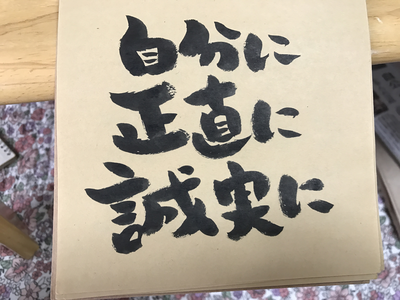 自分に
正直に
誠実に